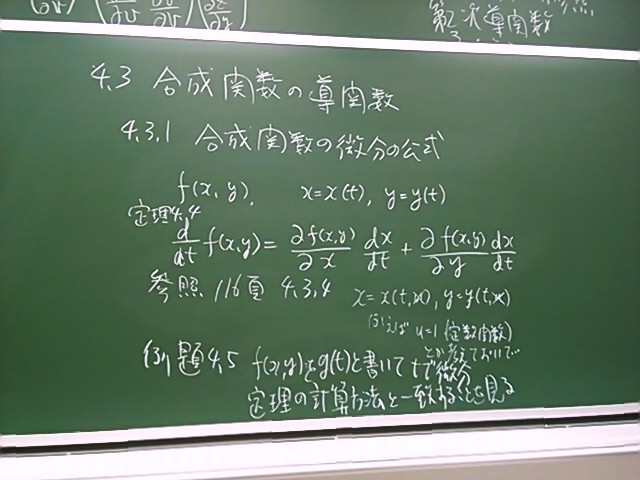 第2次導関数
4.3 合成関数の導関数
4.3.1 合成関数の微分の公式
f(x, y), x=x(t), y=y(t)
定理4.4
d/dt f(x,y) = ∂f(x,y)/∂x dx/dt + ∂f(x,y)/∂y dx/dt
参照 116頁 4.3.4 x=x(t,u), y=y(t,u)
例えば u=1 (定数関数)
とか考えておいて…
例題4.5 f(x,y)をg(t)と書いてtで微分
定理の計算方法と一致することを見る